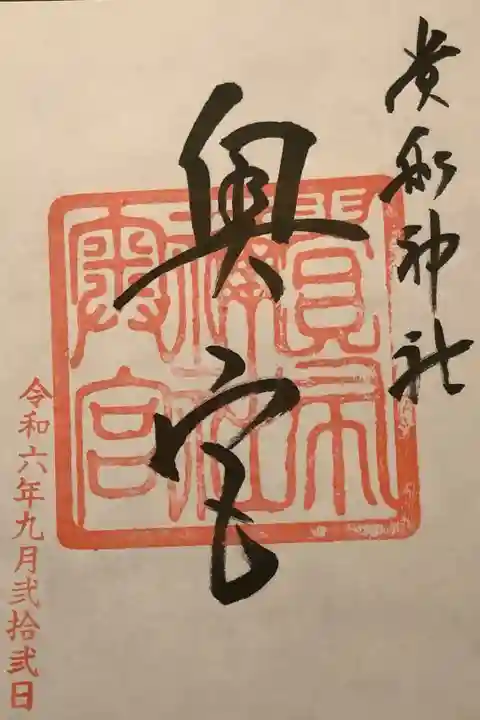 貴船神社
奥宮
令和六年九月弐拾弐日